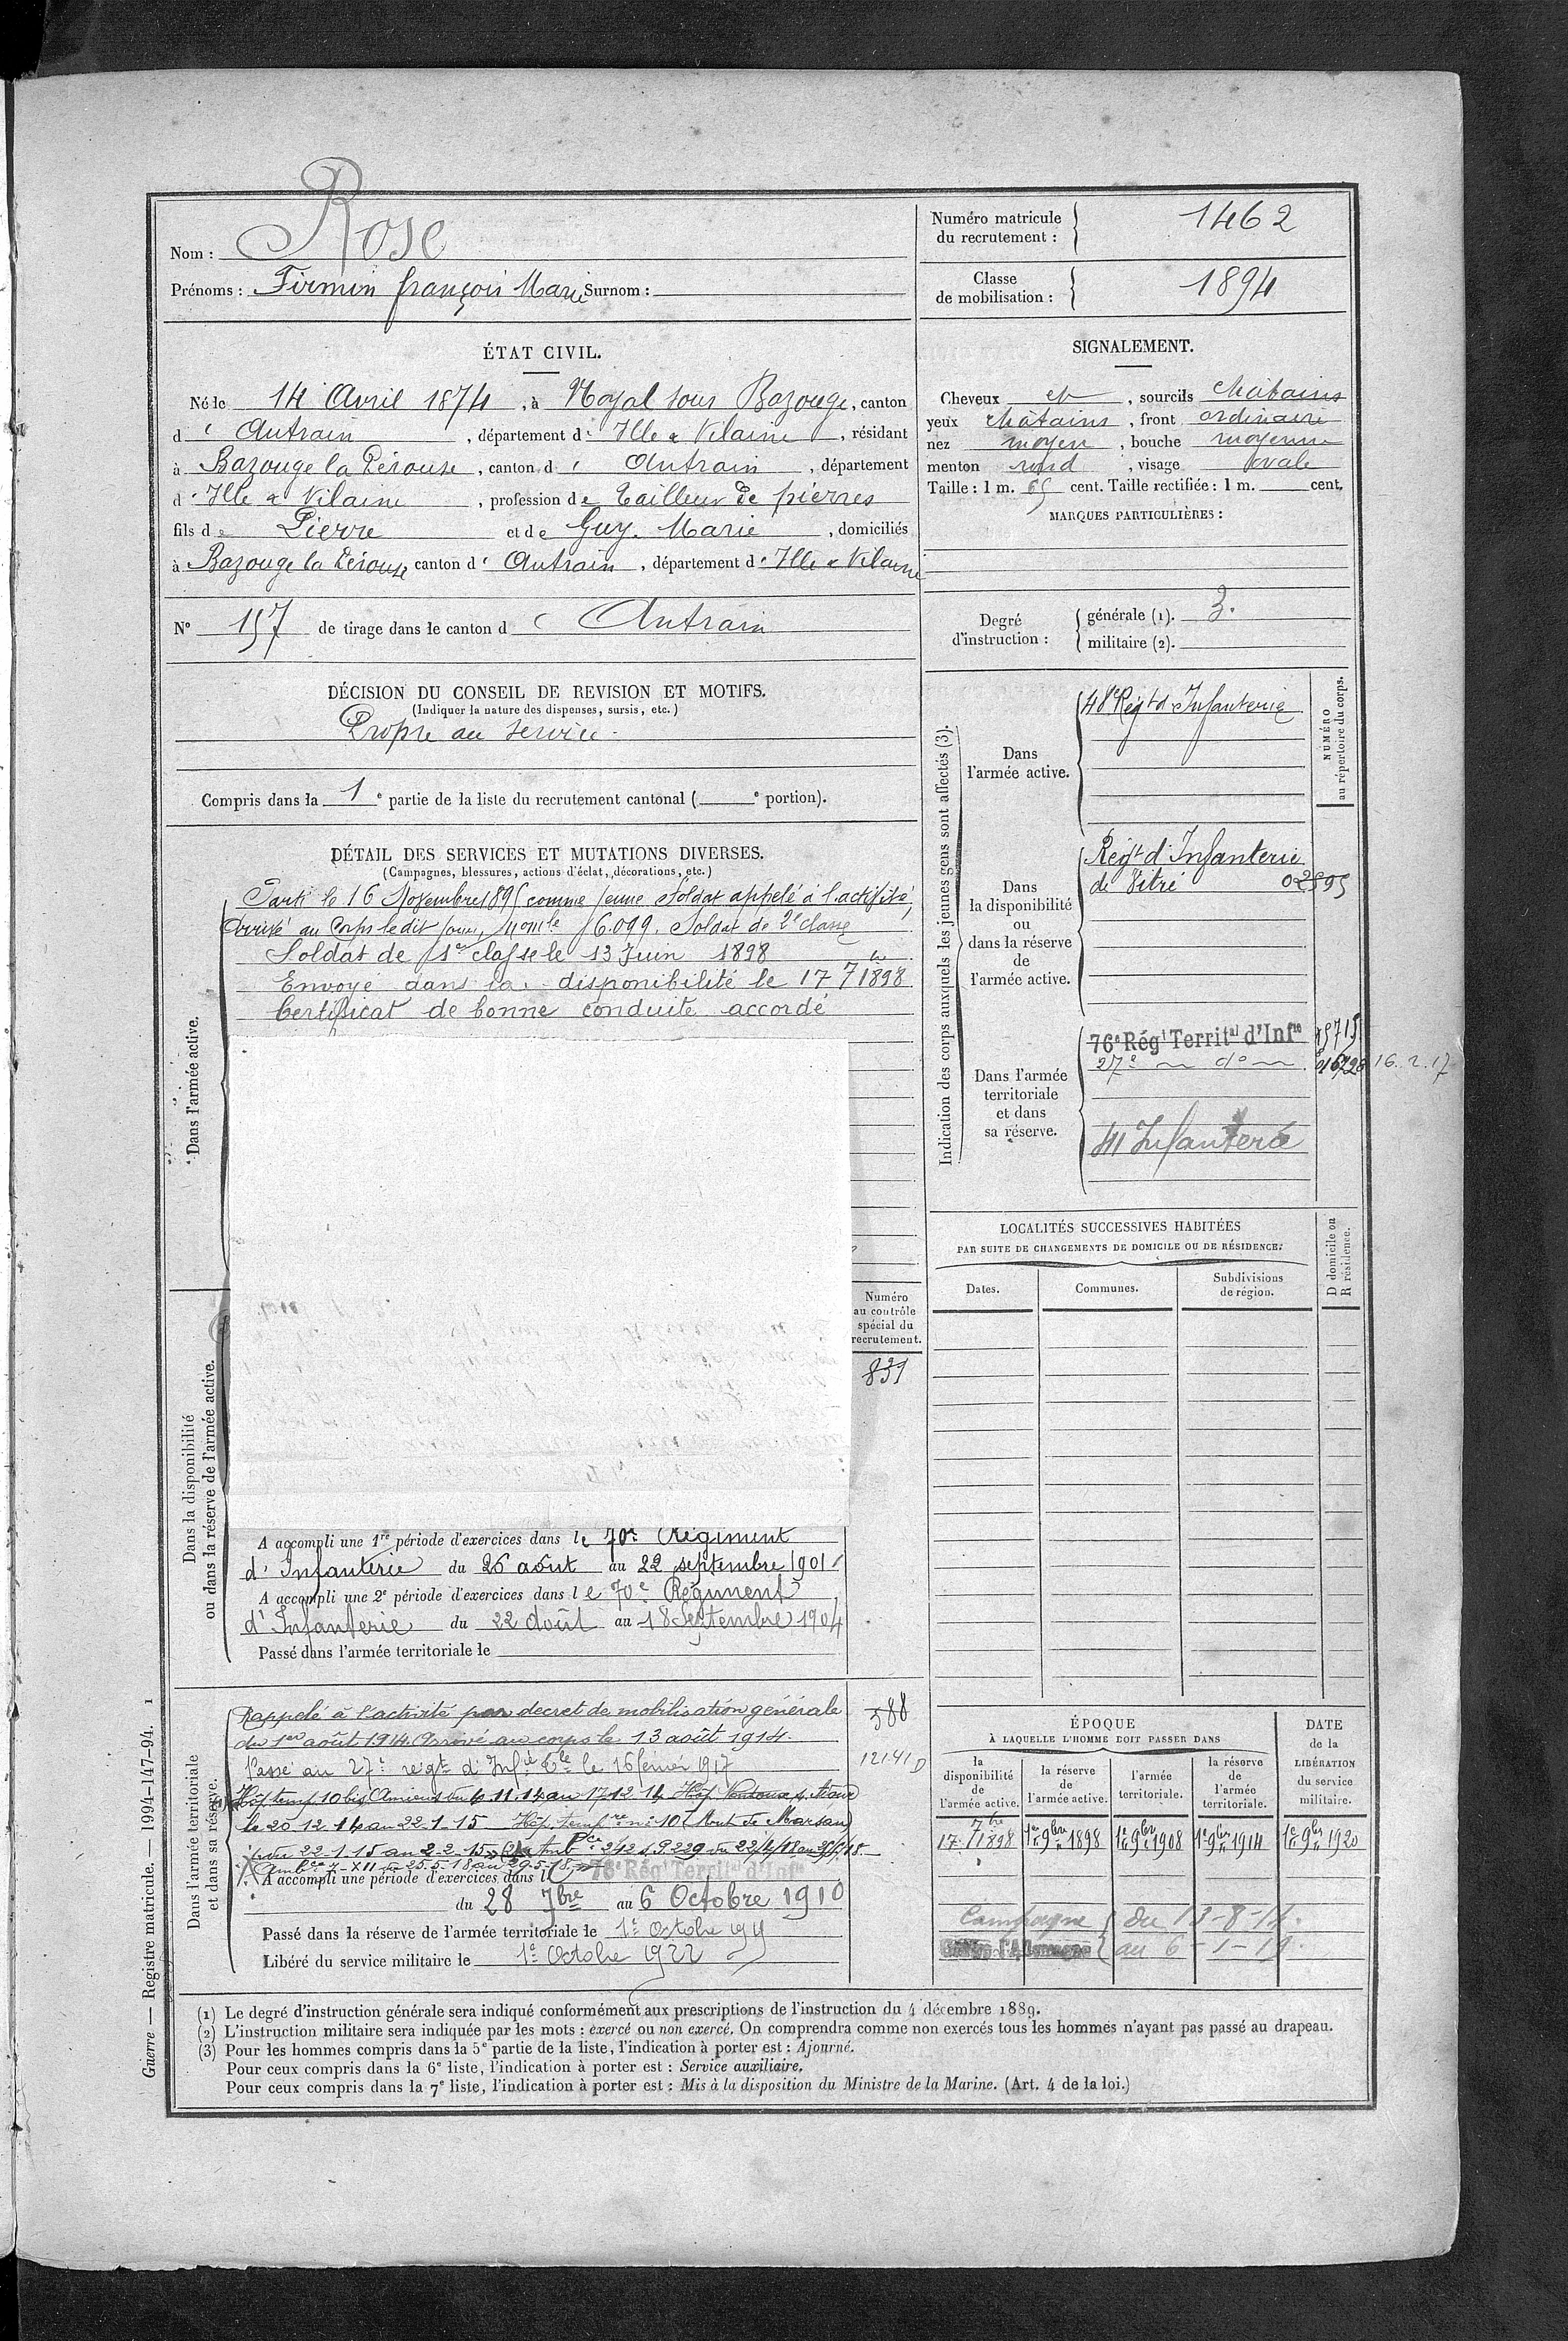 Nom : Rose
Prénoms : Firmin françois Marie Surnom :
Numéro matricule du recrutement : 1462
Classe de mobilisation : 1894
ÉTAT CIVIL.
Né le 14 Avril 1874, à Noyal sous Bazouge, canton
d' Antrain, département d' Ille & Vilaine, résidant
à Bazouge la Pérouse, canton d' Antrain, département
d' Ille & Vilaine, profession de tailleur de pierres
fils de Pierre et de Guy. Marie, domiciliés
à Bazouge la Pérouse canton d' Antrain, département d' Ille & Vilaine
N° 157 de tirage dans le canton d' Antrain
SIGNALEMENT.
Cheveux et, sourcils châtains
yeux châtains, front ordinaire
nez moyen, bouche moyenne
menton rond, visage ovale
Taille : 1 m. 65 cent. Taille rectifiée : 1 m. cent.
MARQUES PARTICULIÈRES :
Degré d'instruction : générale (1). 3.
militaire (2).
DÉCISION DU CONSEIL DE REVISION ET MOTIFS.
(Indiquer la nature des dispenses, sursis, etc.)
Propre au service.
Compris dans la 1e partie de la liste du recrutement cantonal ( e portion).
DÉTAIL DES SERVICES ET MUTATIONS DIVERSES.
(Campagnes, blessures, actions d'éclat, décorations, etc.)
Dans l'armée active.
Parti le 16 Novembre 1895 comme jeune soldat appelé à l'activité,
Arrivé au Corps ledit jour, 6.099. Soldat de 2e classe
Soldat de 1re classe le 13 Juin 1898
Envoyé dans la disponibilité le 17 7bre 1898
Certificat de bonne conduite accordé
Dans la disponibilité
ou dans la réserve de l'armée active.
Numéro
au contrôle
spécial du
recrutement.
831
A accompli une 1re période d'exercices dans le 70e Régiment
d'Infanterie du 26 août au 22 septembre 1901
A accompli une 2e période d'exercices dans le 70e Régiment
d'Infanterie du 22 août au 18 Septembre 1904
Passé dans l'armée territoriale le
Dans l'armée territoriale
et dans sa réserve.
Rappelé à l'activité par decret de mobilisation générale
du 1er août 1914. Arrivé au corps le 13 août 1914.
588
Passé au 27e régt d'Infie Tle le 16 février 1917
12141 D
Hôp temp 10 bis Amiens du 6.11.14 au 17 12 14 Hôp.
le 20 12 14 au 22-1-15 Hôp. tempre n° 10 (Mont de Marsan)
du 22-1-15 au 2-2-15 Amb 2/12 S.P 229 du
du 25.5-18 au 29.5-18
A accompli une période d'exercices dans le 76e Rég Territal d'Infie
du 28 7bre au 6 Octobre 1910
Passé dans la réserve de l'armée territoriale le 1e Octobre
Libéré du service militaire le 1e Octobre 1922
Indication des corps auxquels les jeunes gens sont affectés (3).
NUMÉRO
au répertoire du corps.
Dans
l'armée active.
48e Régt d'Infanterie
Dans
la disponibilité
ou
dans la réserve
de
l'armée active.
Régt d'Infanterie
de Vitré 02595
Dans l'armée
territoriale
et dans
sa réserve.
76e Régt Territal d'Infie
27e do 16.2.17
41 Infanterie
LOCALITÉS SUCCESSIVES HABITÉES
PAR SUITE DE CHANGEMENTS DE DOMICILE OU DE RÉSIDENCE.
D domicile ou
R résidence.
Dates. Communes. Subdivisions de région.
ÉPOQUE
À LAQUELLE L'HOMME DOIT PASSER DANS
DATE de la LIBÉRATION du service militaire.
la disponibilité de l'armée active.
la réserve de l'armée active.
l'armée territoriale.
la réserve de l'armée territoriale.
17 7bre 1898 1er 9bre 1898 1er 9bre 1908 1er 9bre 1914 1er 9bre 1920
Campagne du 13-8-14.
au 6-1-19.
(1) Le degré d'instruction générale sera indiqué conformément aux prescriptions de l'instruction du 4 décembre 1889.
(2) L'instruction militaire sera indiquée par les mots : exercé ou non exercé. On comprendra comme non exercés tous les hommes n'ayant pas passé au drapeau.
(3) Pour les hommes compris dans la 5e partie de la liste, l'indication à porter est : Ajourné.
Pour ceux compris dans la 6e liste, l'indication à porter est : Service auxiliaire.
Pour ceux compris dans la 7e liste, l'indication à porter est : Mis à la disposition du Ministre de la Marine. (Art. 4 de la loi.)
Guerre — Registre matricule. — 1994-147-94. 1